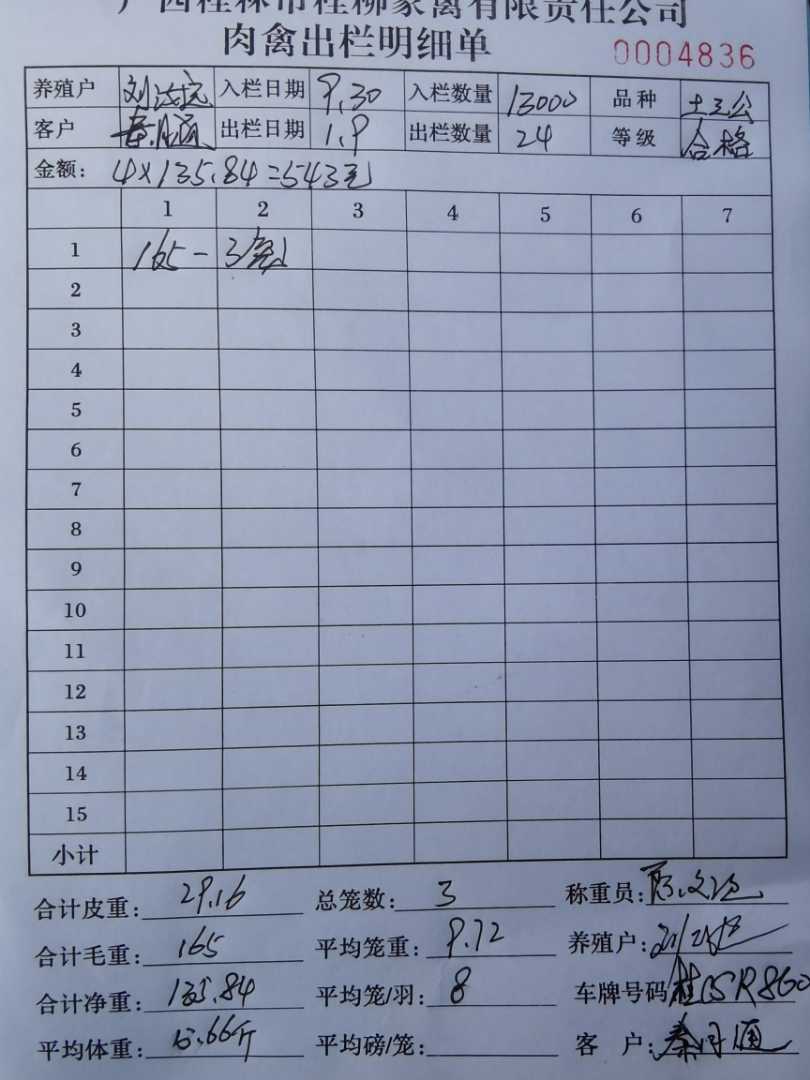 广西桂林市桂柳家禽有限责任公司
肉禽出栏明细单 0004836
养殖户 入栏日期 9.30 入栏数量 13000 品种 土2公
客户 秦月通 出栏日期 1.9 出栏数量 24 等级 合格
金额: 4×135.84=543元
1 2 3 4 5 6 7
1 165-3
2
3
4
5
6
7
8
9
10
11
12
13
14
15
小计
合计皮重: 29.16 总笼数: 3 称重员:
合计毛重: 165 平均笼重: 9.72 养殖户:
合计净重: 135.84 平均笼/羽: 8 车牌号码
平均体重: 5.66斤 平均磅/笼: 客户: 秦月通